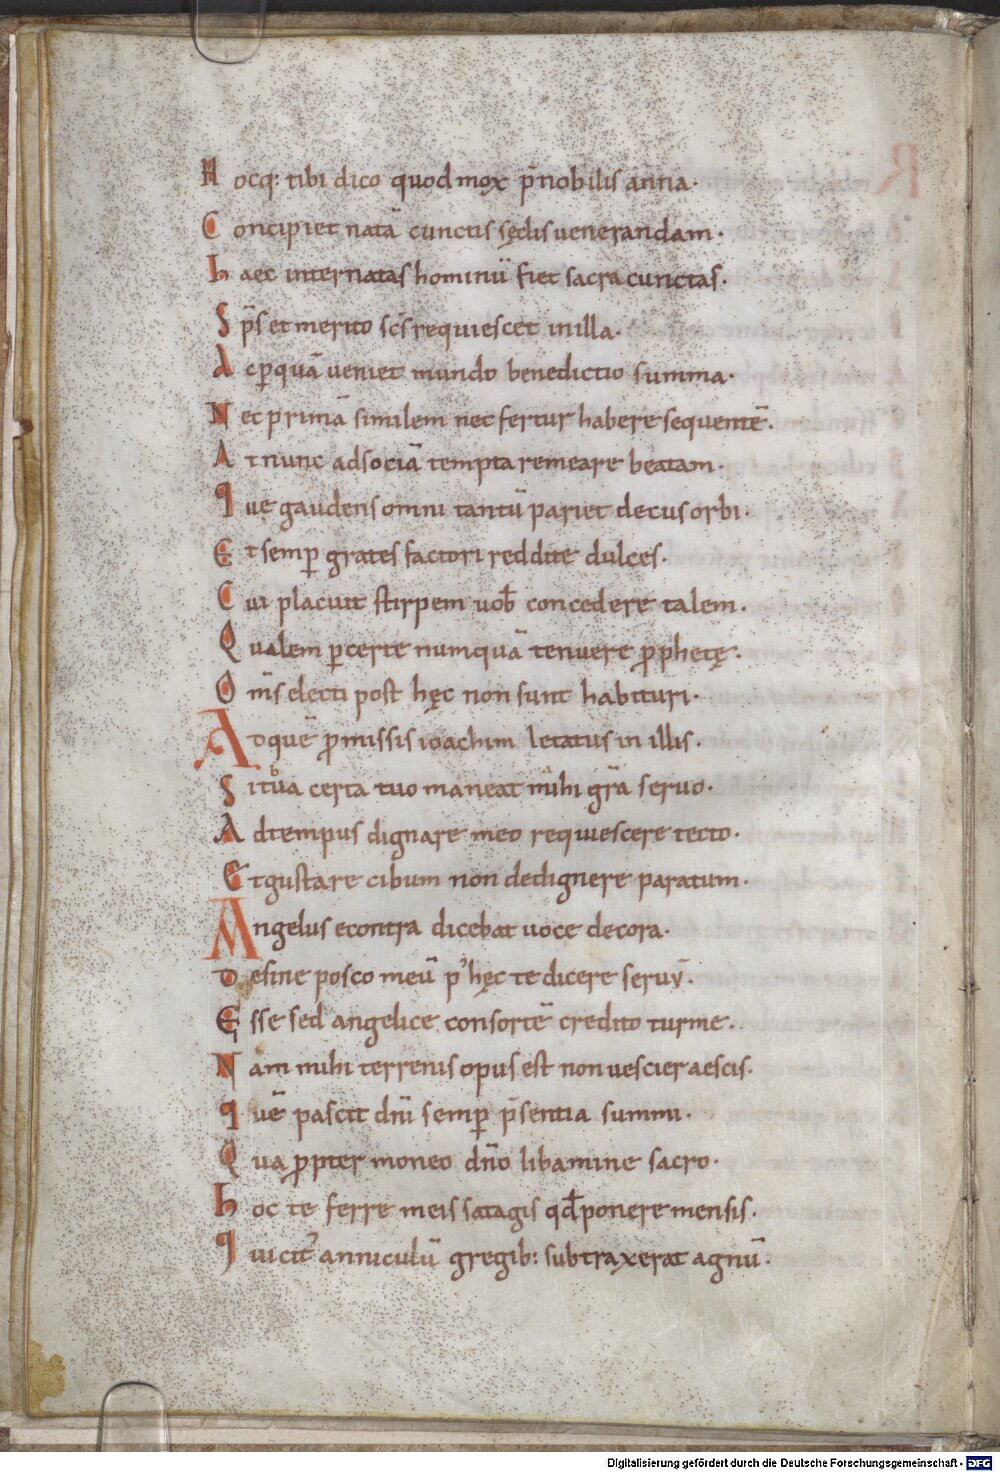 Hocq: tibi dico quod mox p̄nobilis anna·
Concipiet natā cunctis sędis uenerandam·
Haec inter natas hominū fiet sacra cunctas·
Sp̄s et merito sc̄s requiescet in illa·
Ac ꝑ quā ueniet mundo benedictio summa·
Nec primā similem nec fertur habere sequentē·
At nunc ad sociā tempta remeare beatam·
Que gaudens omni tantū pariet decus orbi·
Et semꝑ grates factori reddite dulces·
Cui placuit stirpem uob̄ concedere talem·
Qualem ꝑ certe numquā tenuere ꝓphetę·
Om̄s electi post hęc non sunt habituri·
Atque ꝓmissis ioachim letatus in illis·
Sit ua certa tuo maneat mihi gr̄a seruo·
Ad tempus dignare meo requiescere tecto·
Et gustare cibum non dedignere paratum·
Angelus econtra dicebat uoce decora·
Desine posco meū p' hęc te dicere seruū·
Esse sed angelice consortē credito turme·
Nam mihi terrenis opus est non uescier aescis·
Quē pascit dn̄i semꝑ p̄sentia summi·
Qua ꝓpter moneo dn̄o libamine sacro·
Hoc te ferre meis satagis qd̄ ponere mensis·
Qui cit' anniculū gregib: subtraxerat agnū·
Digitalisierung gefördert durch die Deutsche Forschungsgemeinschaft - DFG